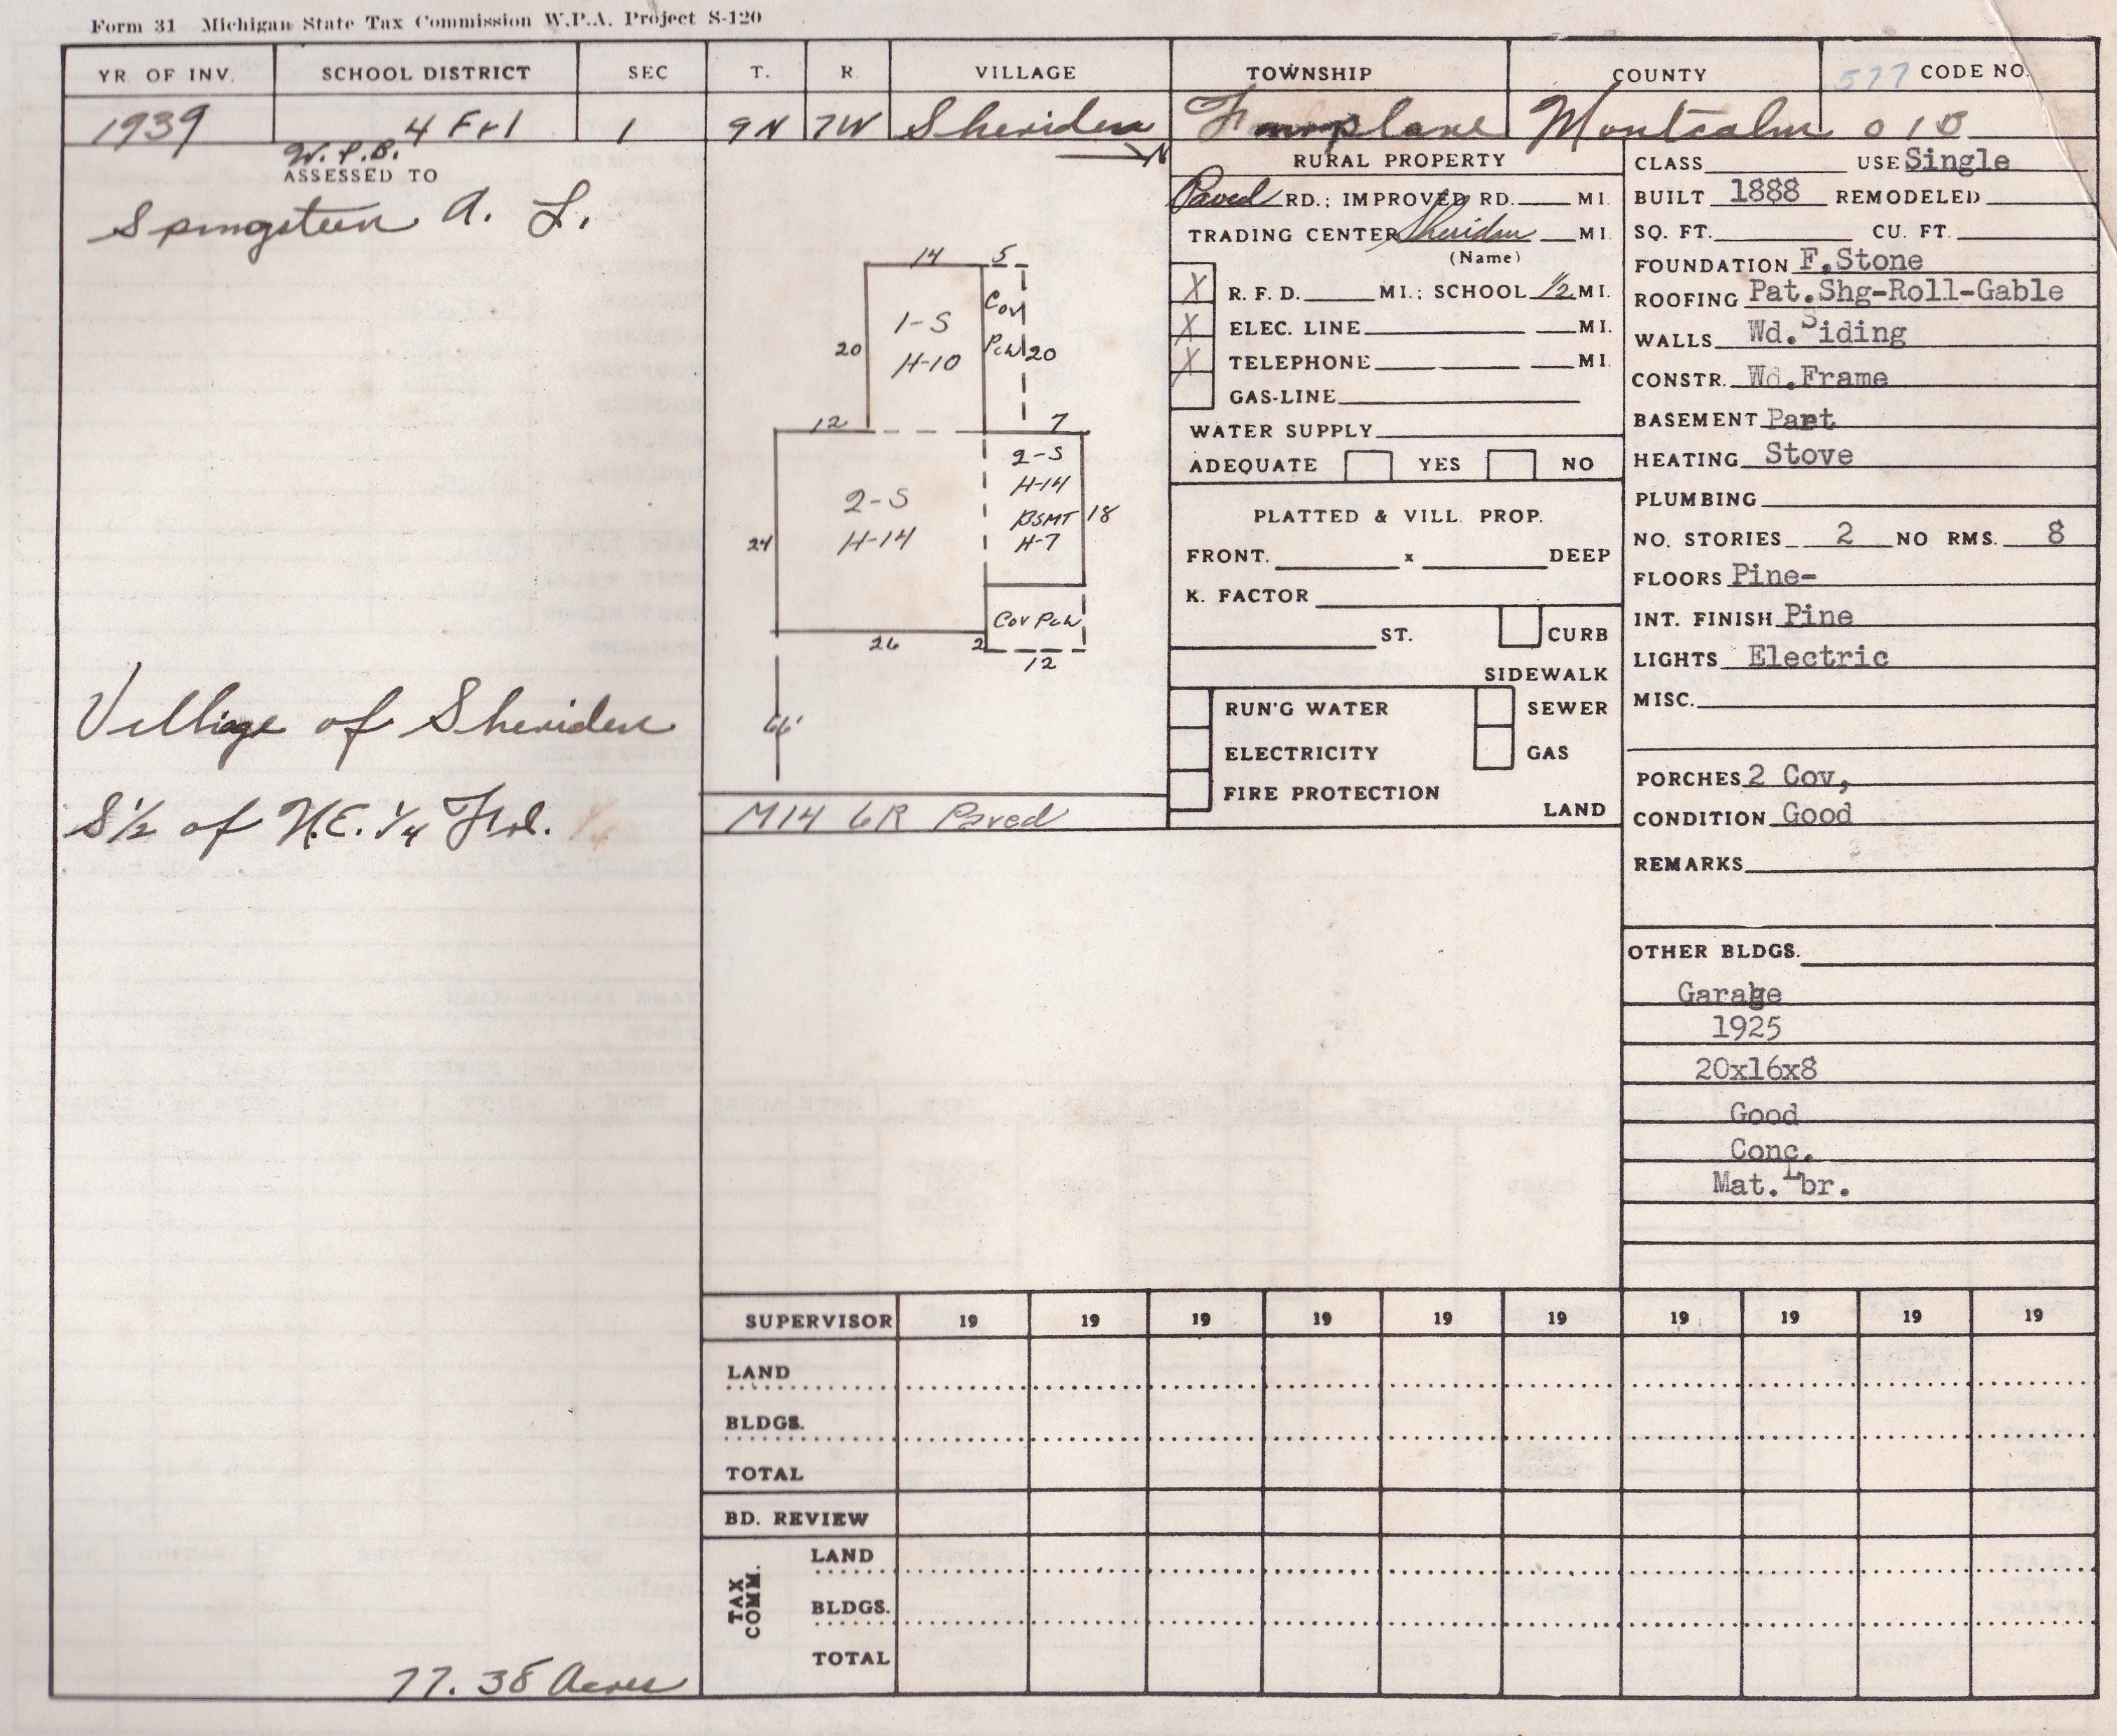 Form 31 Michigan State Tax Commission W.P.A. Project S-120
YR. OF INV. SCHOOL DISTRICT SEC T. R. VILLAGE TOWNSHIP COUNTY 577 CODE NO.
1939 4 Frl 1 9N 7W Sheriden plane Montcalm 010
W.P.B.
ASSESSED TO
Spingsteen A. L.
Village of Sheriden
S½ of N.E. ¼ Frl. ¼
77.38 Acres
N
14 5
1-S
H-10
20
Cov
Pch 20
12 7
2-S
H-14
24
2-S
H-14
BSMT
H-7
18
Cov Pch
26 2
12
66'
M14 6R Paved
RURAL PROPERTY
Paved RD.; IMPROVED RD. MI.
TRADING CENTER Sheridan MI.
(Name)
X R.F.D. MI.; SCHOOL ½ MI.
X ELEC. LINE MI.
X TELEPHONE MI.
GAS-LINE
WATER SUPPLY
ADEQUATE YES NO
PLATTED & VILL. PROP.
FRONT. x DEEP
K. FACTOR
ST. CURB
SIDEWALK
RUN'G WATER SEWER
ELECTRICITY GAS
FIRE PROTECTION
LAND
CLASS USE Single
BUILT 1888 REMODELED
SQ. FT. CU. FT.
FOUNDATION F.Stone
ROOFING Pat.Shg-Roll-Gable
WALLS Wd.Siding
CONSTR. Wd.Frame
BASEMENT Part
HEATING Stove
PLUMBING
NO. STORIES 2 NO RMS. 8
FLOORS Pine-
INT. FINISH Pine
LIGHTS Electric
MISC.
PORCHES 2 Cov,
CONDITION Good
REMARKS
OTHER BLDGS.
Garage
1925
20x16x8
Good
Conc.
Mat.Lbr.
SUPERVISOR 19 19 19 19 19 19 19 19 19 19
LAND
BLDGS.
TOTAL
BD. REVIEW
TAX COMM.
LAND
BLDGS.
TOTAL